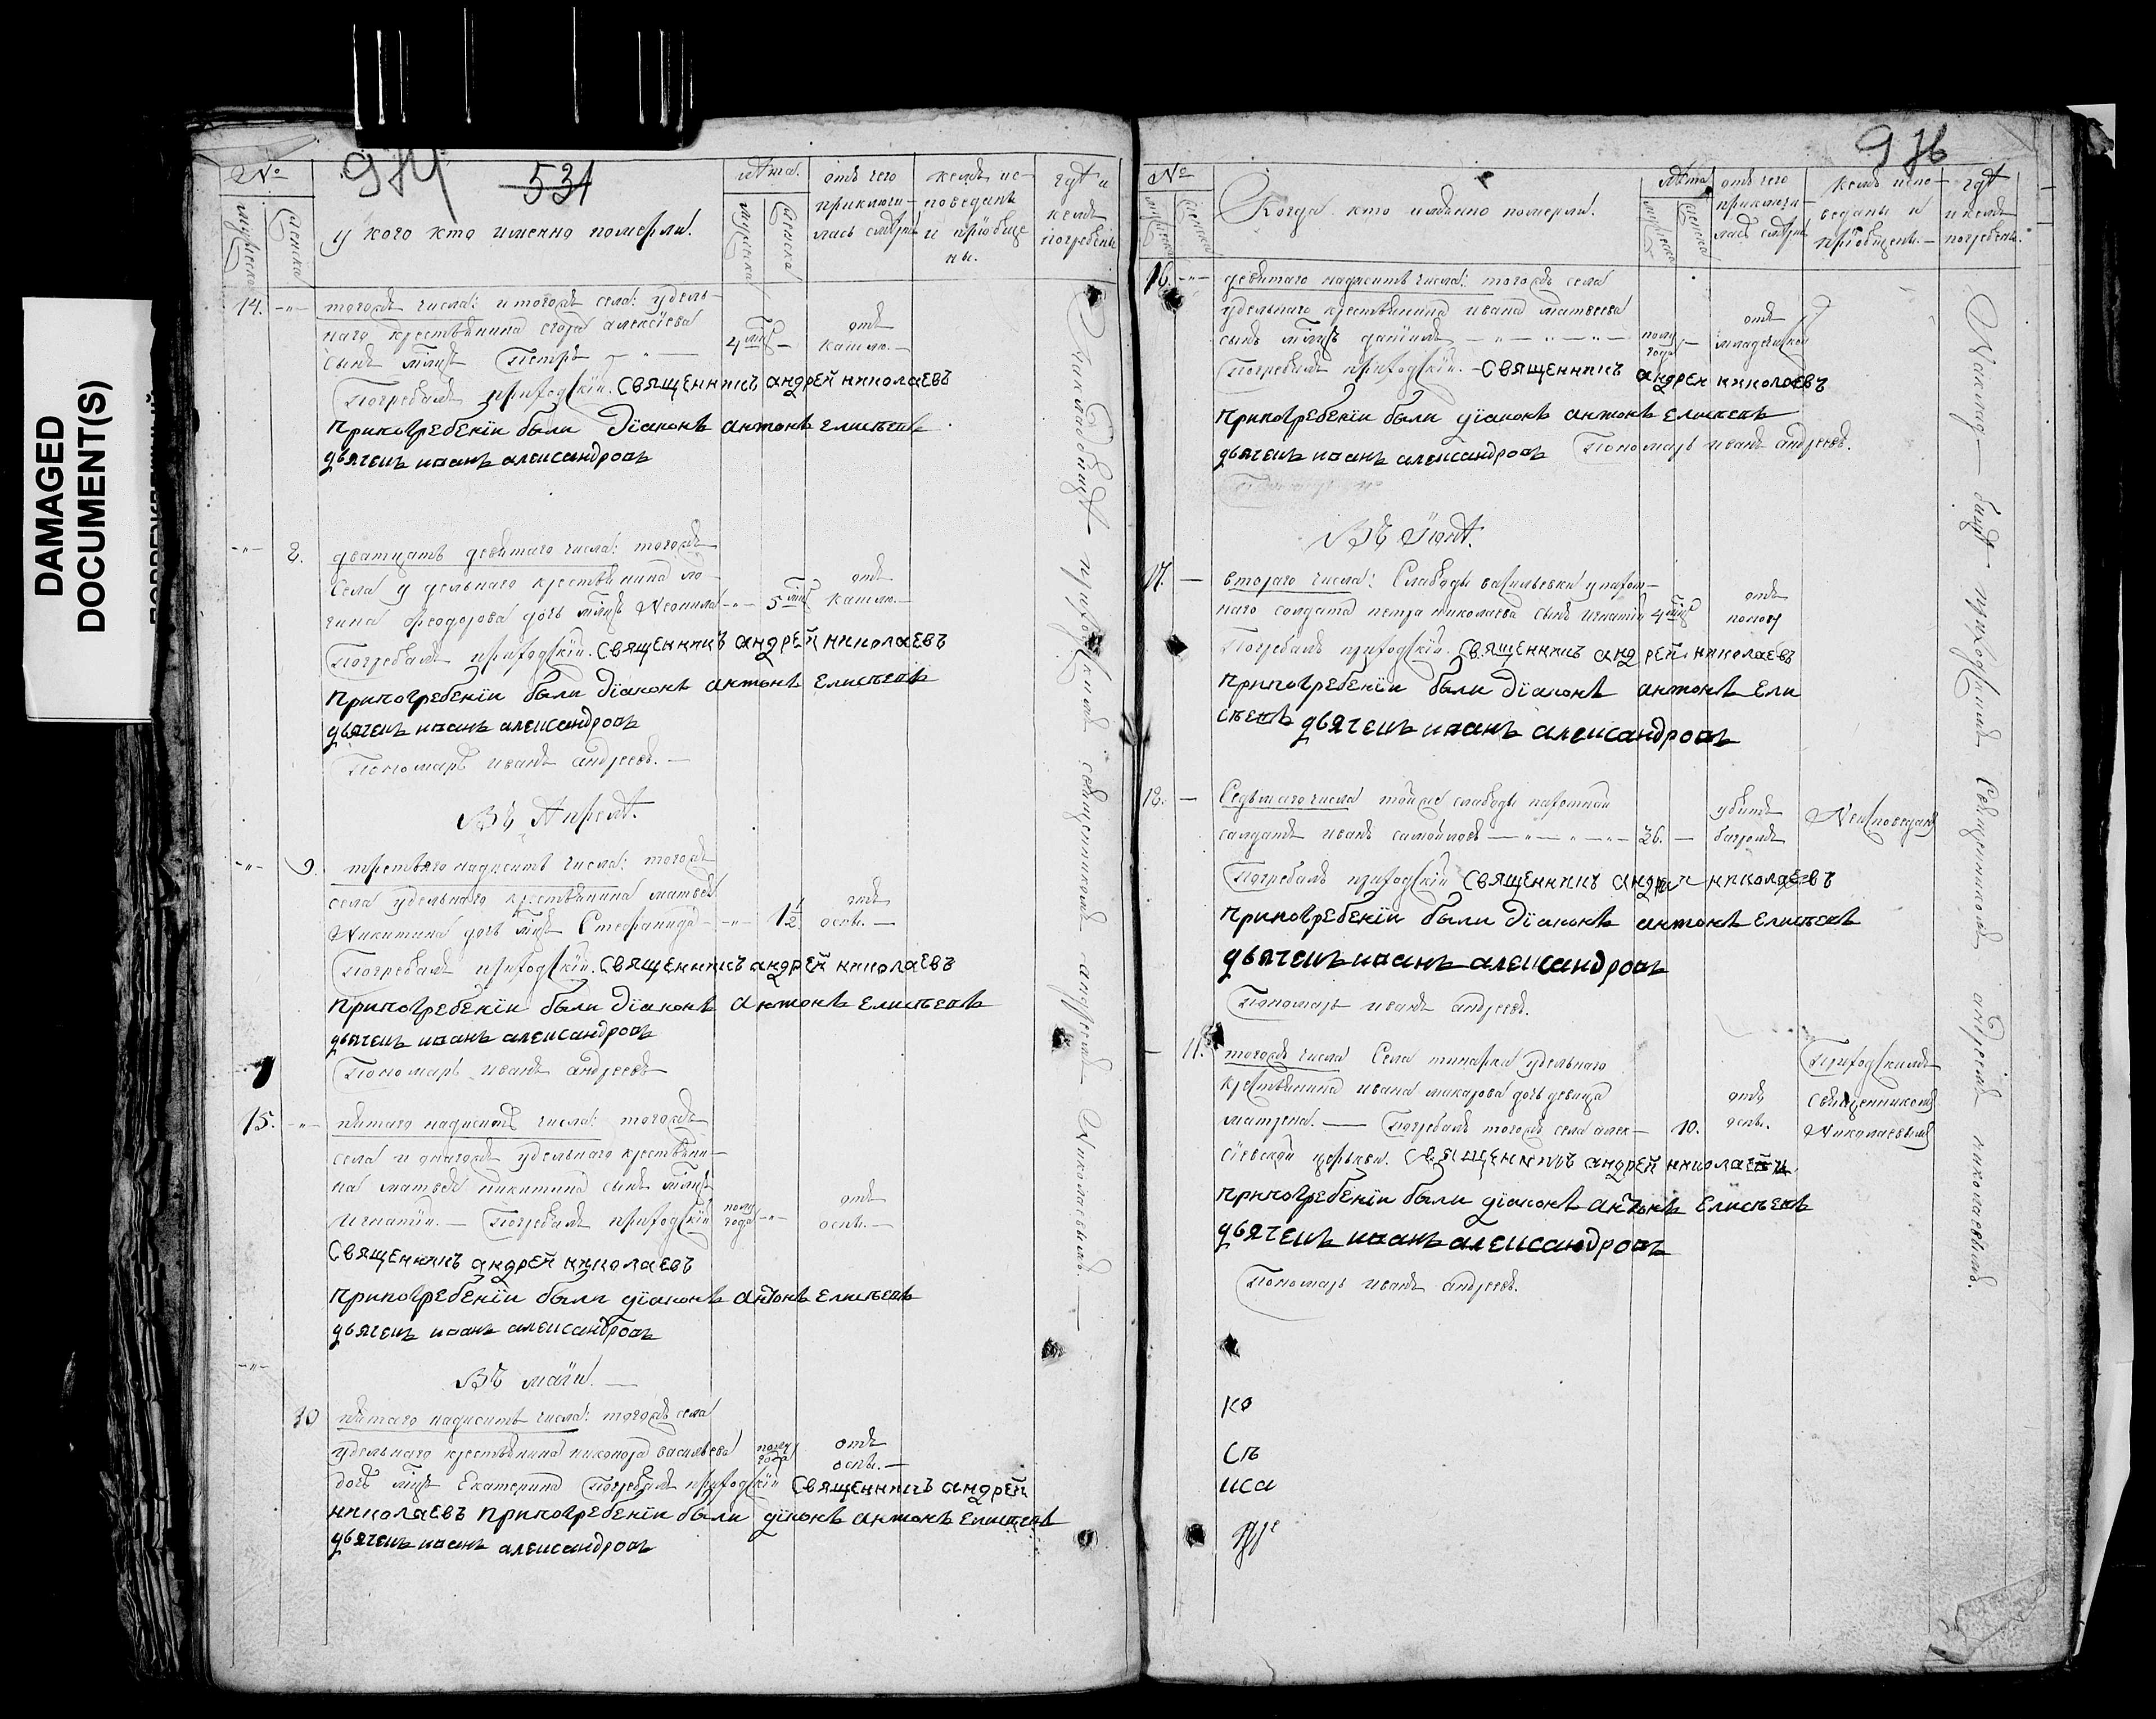 DAMAGED
DOCUMENT(S)
№
мужеска
женска
974
531
у кого кто именно померли.
лѣта.
мужеска
женска
отъ чего
приключи-
лась смерть
кемъ ис-
поведанъ
и пріобще
ны.
гдѣ и
кемъ
погребены
14.
тогожъ числа: и тогожъ села: удель-
наго крестьянина егора алексіева
сынъ млнцъ Петръ
4 мц
отъ
кашлю.
Погребалъ приходскій. священникъ андрей николаевъ
при погребеніи были діаконъ антонъ елисѣевъ
дьячекъ иванъ александровъ
8.
дватцать девятаго числа: тогожъ
села удельнаго крестьянина ло-
гина Феодорова дочь млнц Неонила
5 мц
отъ
кашлю.
Погребалъ приходскій. священникъ андрей николаевъ
при погребеніи были діаконъ антонъ елисѣевъ
дьячекъ иванъ александровъ
Пономарь иванъ андреевъ.
Въ Апрелѣ.
9.
третьяго надцать числа: тогожъ
села удельнаго крестьянина матвея
Никитина дочь млнц Стефанида
1 1/2
отъ
оспы.
Погребалъ приходскій. священникъ андрей николаевъ
при погребеніи были діаконъ антонъ елисѣевъ
дьячекъ иванъ александровъ
Пономарь иванъ андреевъ
15.
пятаго надцать числа: тогожъ
села и оногожъ удельнаго крестьяни-
на матвея никитина сынъ млнцъ
Игнатіи. Погребалъ приходскій
полу
года
отъ
оспы.
священникъ андрей николаевъ
при погребеніи были діаконъ антонъ елисѣевъ
дьячекъ иванъ александровъ
Въ маіи.
10
пятаго надцать числа: тогожъ села
удельнаго крестьянина никонора васильева
полу
года
отъ
оспы.
дочь млнц Екатерина Погребалъ приходскій священникъ андрей
николаевъ при погребеніи были діконъ антонъ елисѣевъ
дьячекъ иванъ александровъ
На кладбищѣ приходскимъ священникомъ андреемъ Николаевымъ.
№
мужеска
женска
976
Когда кто имянно померли.
лѣта
мужеска
женска
отъ чего
приключи-
лась смерть
кемъ испо-
веданы и
пріобщены.
гдѣ
и кемъ
погребены.
16.
девятаго надцать числа: тогожъ села
удельнаго крестьянина ивана матвеева
сынъ млнцъ даніилъ
полу
года
отъ
младенской
Погребалъ приходскій. священникъ андреи николаевъ
при погребеніи были діаконъ антонъ елисѣевъ
дьячекъ иванъ александровъ Пономарь иванъ андреевъ.
Въ Іюнѣ.
17.
втораго числа: Слабоды васильевки пахот-
наго солдата петра николаева сынъ игнатіи
4 мц
отъ
Погребалъ приходскій. священникъ андрей николаевъ
при погребеніи были діаконъ антонъ ели
сѣевъ дьячекъ иванъ александровъ
18.
Седьмаго числа тойже слабоды пахотный
салдатъ иванъ самойловъ
36.
убитъ
багромъ
Неисповеданъ
Погребалъ приходскій священникъ андрей николаевъ
при погребеніи были діаконъ антонъ елисѣевъ
дьячекъ иванъ александровъ
Пономарь иванъ андреевъ.
11.
тогожъ числа Села тинарка удельнаго
крестьянина ивана макарова дочь девица
матрена. Погребалъ тогожъ села алек-
10.
отъ
оспы.
Приходскимъ
священникомъ
Николаевымъ
сіевской церькви. священникъ андрей николаевъ
при погребеніи были діаконъ антонъ елисѣевъ
дьячекъ иванъ александровъ
Пономарь иванъ андреевъ.
На кладбищѣ приходскимъ Священникомъ андреемъ николаевымъ.
ко
Съ
иса